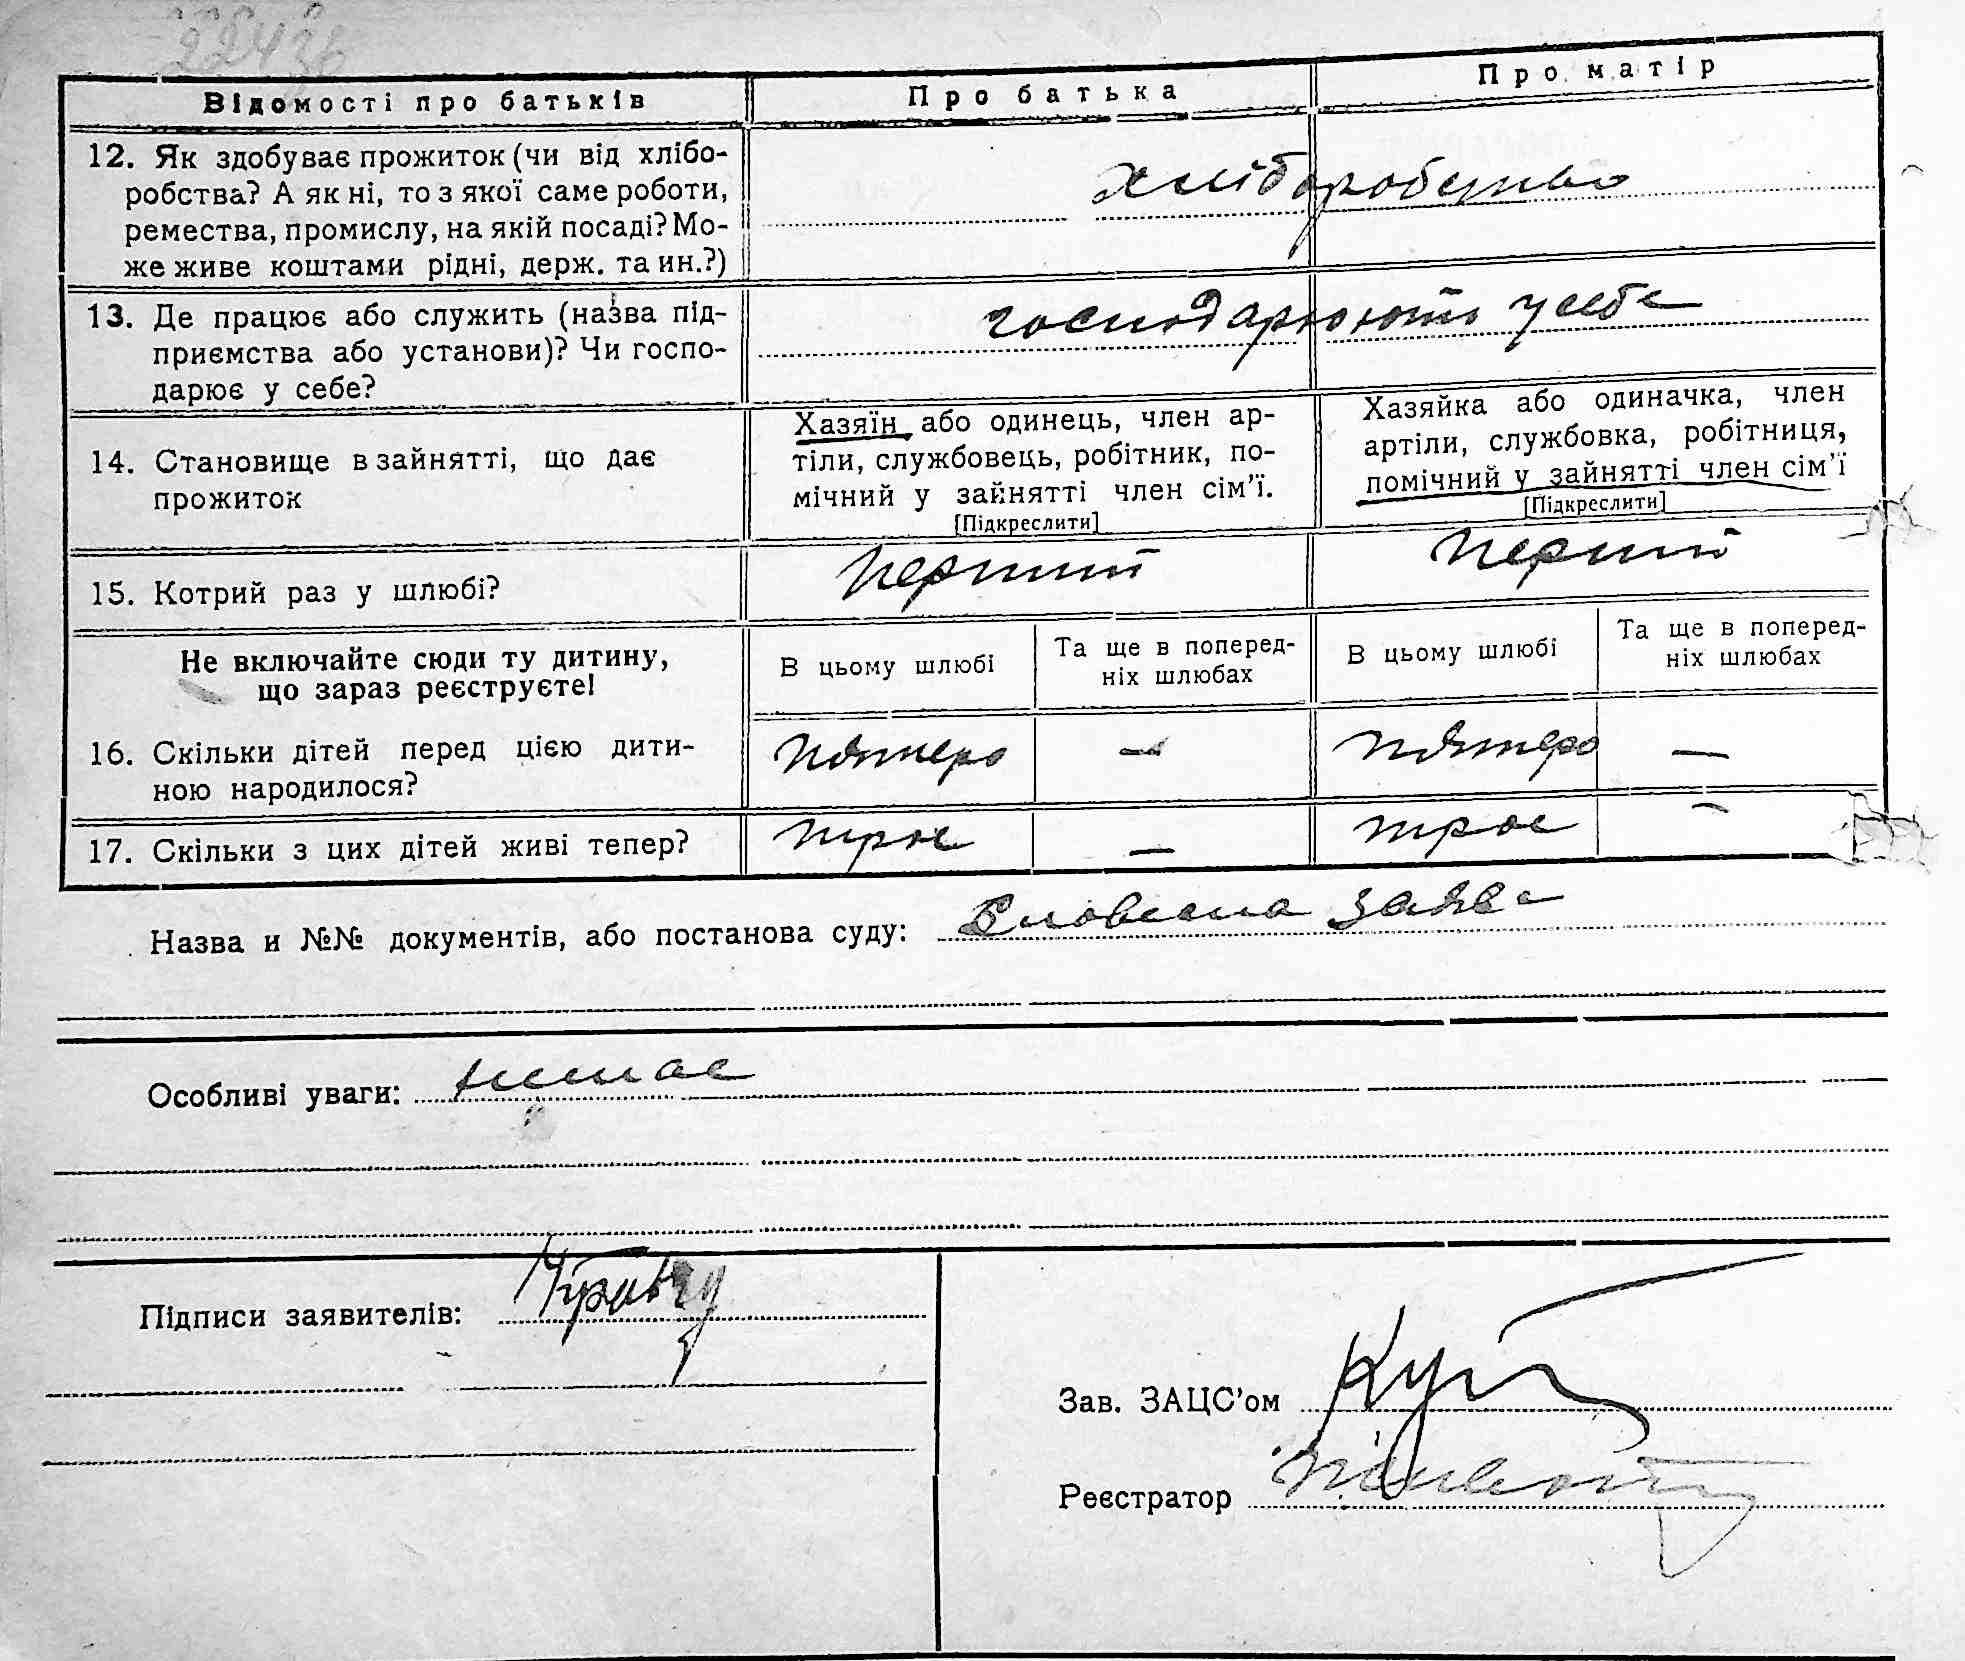 22436
Відомості про батьків
Про батька
Про матір
12. Як здобуває прожиток (чи від хлібо-
робства? А як ні, то з якої саме роботи,
ремества, промислу, на якій посаді? Мо-
же живе коштами рідні, держ. та ин.?)
хліборобство
13. Де працює або служить (назва під-
приємства або установи)? Чи госпо-
дарює у себе?
господарюють у себе
14. Становище в зайнятті, що дає
прожиток
Хазяїн або одинець, член ар-
тіли, службовець, робітник, по-
мічний у зайнятті член сім'ї.
[Підкреслити]
Хазяйка або одиначка, член
артіли, службовка, робітниця,
помічний у зайнятті член сім'ї
[Підкреслити]
15. Котрий раз у шлюбі?
перший
перший
Не включайте сюди ту дитину,
що зараз реєструєте!
В цьому шлюбі
Та ще в поперед-
ніх шлюбах
В цьому шлюбі
Та ще в поперед-
ніх шлюбах
16. Скільки дітей перед цією дити-
ною народилося?
пʼятеро
—
пʼятеро
—
17. Скільки з цих дітей живі тепер?
троє
—
троє
—
Назва и №№ документів, або постанова суду: Словесна заява
Особливі уваги: немає
Підписи заявителів:
Зав. ЗАЦС'ом
Реєстратор